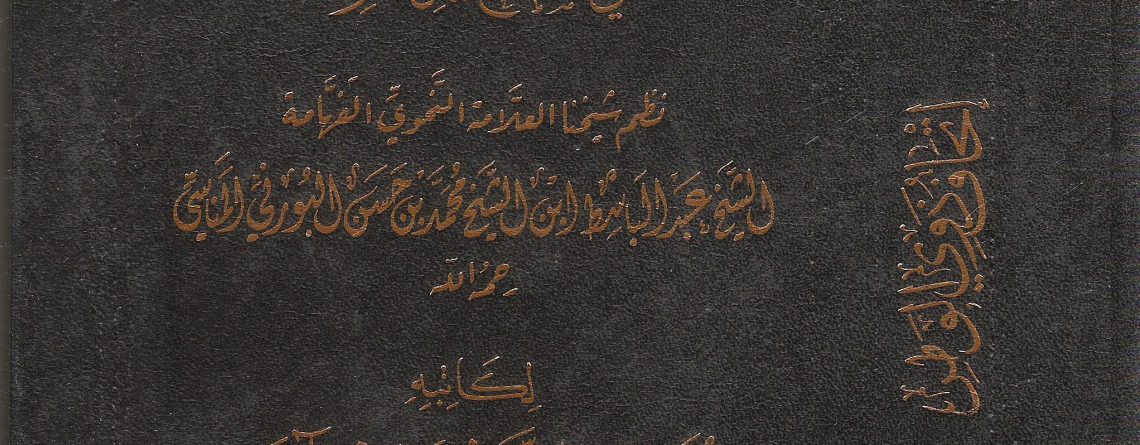 نظم شيخنا العلَّامة النَّحويِّ الفهَّامة
الشَّيْخ عَبْد البَاسِط ابْن الشَّيْخ مُحَمَّد بْن حَسَن البُورَنِي المَنَاسِيّ
رحمه الله
لِكَاتِبِهِ
إتحاف ذوي الوطر